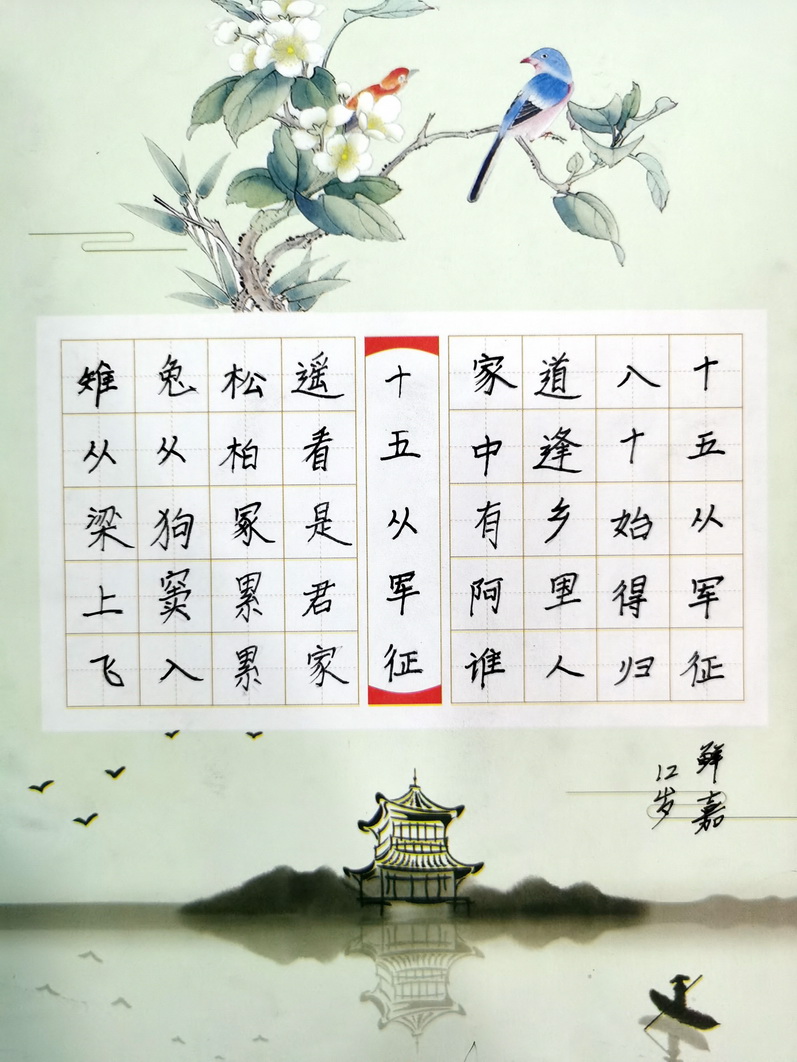 十五从军征
八十始得归
道逢乡里人
家中有阿谁
十五从军征
遥看是君家
松柏冢累累
兔从狗窦入
雉从梁上飞
鲜嘉
12岁